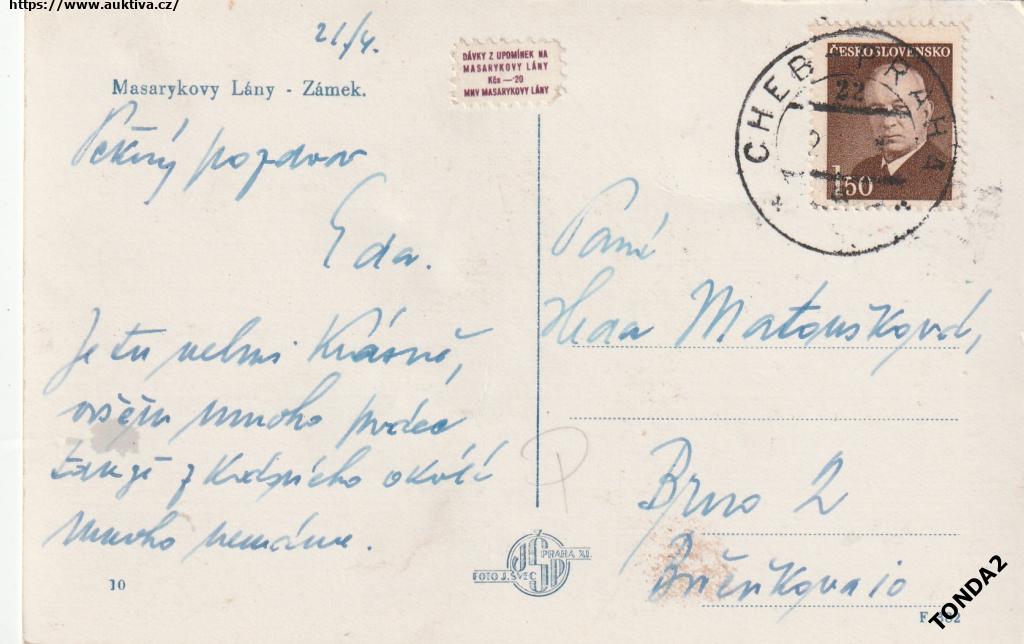 https://www.auktiva.cz/
21/4.
Masarykovy Lány - Zámek.
DÁVKY Z UPOMÍNEK NA
MASARYKOVY LÁNY
Kčs —·20
MNV MASARYKOVY LÁNY
ČESKOSLOVENSKO
1.50
CHEB PRAHA
22
Pěkný pozdrav
Eda.
Je tu velmi krásně,
ovšem mnoho práce
takže z krásného okolí
mnoho nemáme.
Paní
Heda Matoušková,
Brno 2
10
JŠP
PRAHA XI.
FOTO J. ŠVEC
TONDA2